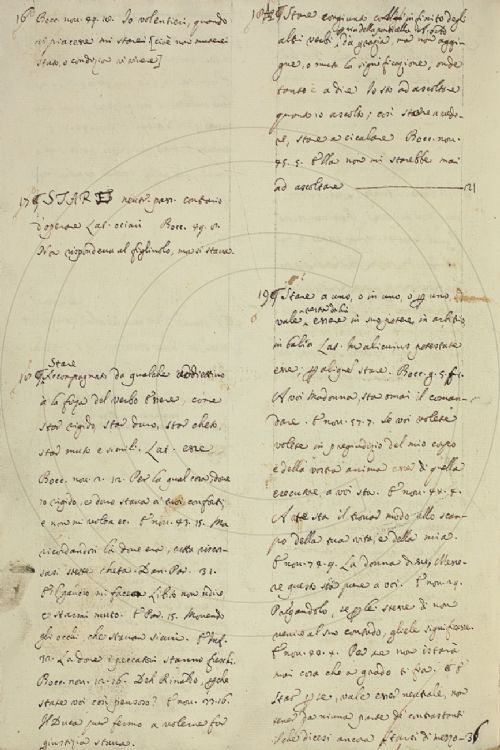 16 Bocc. nov. 49. 10. Io volentieri, quando
vi piacesse mi starei [cioè non muterei
stato, o condizion di vivere]
17 ¶ STARE neutr. pass. contrario
d'operare Lat. ociari Bocc. 49.
Nea rispondeva al figliuolo, ma si stava.
Stare
18 ¶ Accompagnato da qualche addiettivo
à la forza del verbo Essere, come
star rigido, star duro, star cheto,
star muto e simili. Lat. esse
Bocc. nov. 2. 12. Per la qual cosa, dove
io rigido, e duro stava a' tuoi conforti
e non mi volea ec. E nov. 43. 15. Ma
ricordandosi là dove era, tutta ricove-
ratasi stette cheta. Dan. Par. 31.
non udire
e starmi muto. E Par. 15. Movendo
gli occhi che stavan sicuri. E Inf.
32. Là dove i peccatori stanno freschi.
Bocc. nov. 12. 16. Deh Rinaldo, perchè
state voi così pensoso? E nov. 27. 16.
Il Duca pur fermo a volerne far
giustizia stava.
Stare congiunto coll' infinito degli
altri verbi
da grazia, ma non aggiu-
gne, o muta la significazione, onde
tanto è a dire Io sto ad ascoltare
quanto io ascolto; così stare a vede-
re, stare a cicalare Bocc. nov.
45. 5. Ella non mi starebbe mai
ad ascoltare 21
19 ¶ Stare a uno, o in uno, o per uno,
vale Essere in suo potere, in arbitrio
in balìa Lat. in alicuius potestate
esse; star. Bocc. g. 5. f.
A voi Madonna, sta omai il coman-
dare. E nov. 57. 7. Se voi volete
in pregiudizio del mio corpo
e della vostra anima esser di quella
esecutore, a voi sta. E nov. 44. 4.
A te sta il trovar modo allo scam-
po della tua vita, e della mia.
E nov. 79. 9. La donna di
re questo sta pure a voi. E nov.
di non
venire al suo contado, gliele significasse.
E nov. 98. 4. Per me non istarà
mai cosa che a grado ti sia.
Star per se, vale esser neutrale, non
tener da niuna parte de' contrastanti
il che dicesi ancora Starsi di mezzo 36